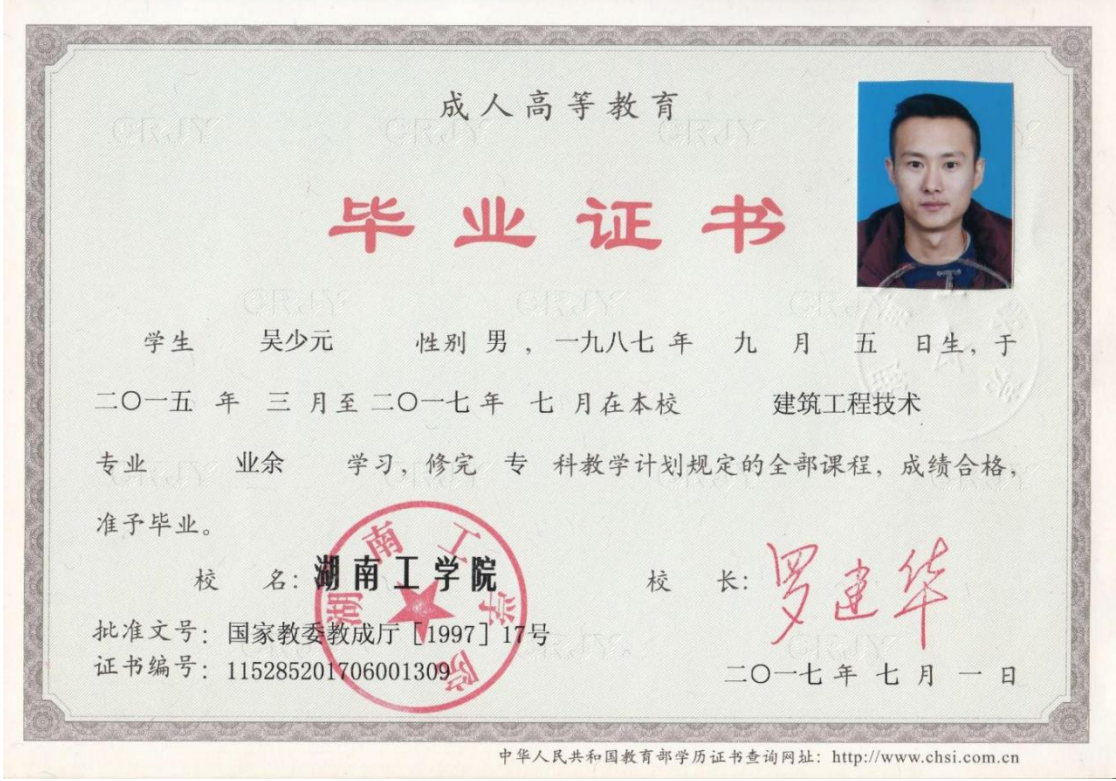 成人高等教育
毕业证书
学生 吴少元 性别 男 ，一九八七 年 九 月 五 日生，于
二〇一五 年 三 月至 二〇一七 年 七 月在本校 建筑工程技术
专业 业余 学习，修完 专 科教学计划规定的全部课程，成绩合格，
准予毕业。
校 名：湖南工学院
校 长：罗建华
湖南工学院
批准文号：国家教委教成厅［1997］17号
证书编号：115285201706001309
二〇一七 年 七 月 一 日
中华人民共和国教育部学历证书查询网址：http://www.chsi.com.cn